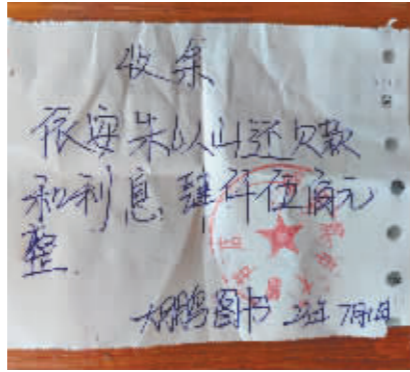 收条
依安朱以山还欠款
和利息肆仟伍佰元
整
大鹏图书 7月1日